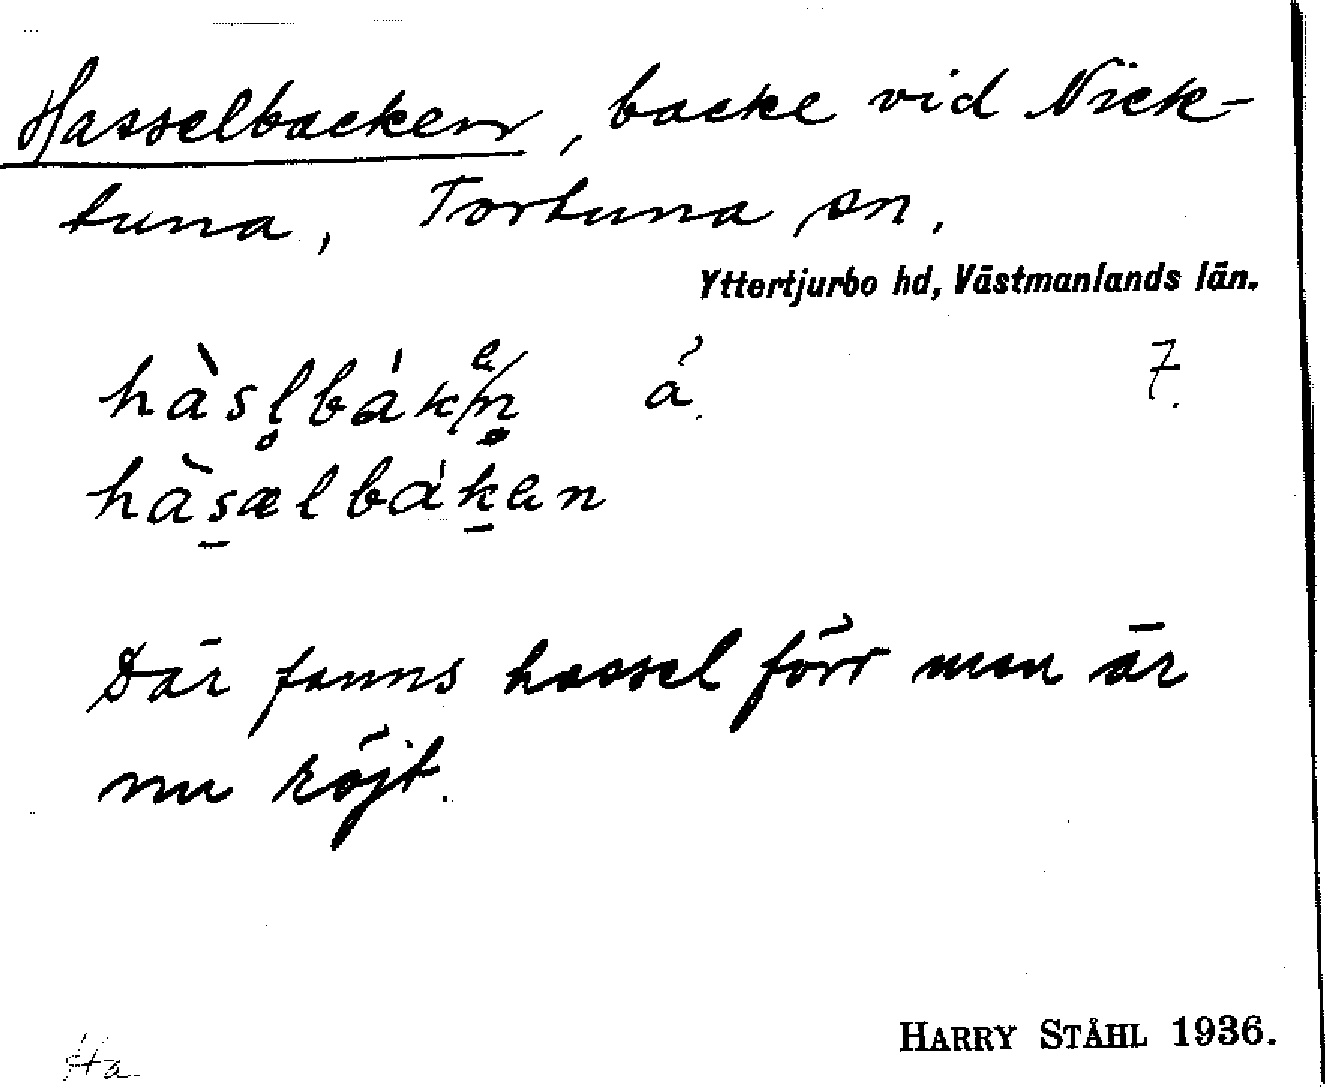 Hasselbacken, backe vid Nick-
tuna, Tortuna sn.
Yttertjurbo hd, Västmanlands län.
hàsl̥bák e/n̥ á 7.
hàs̠ælbák̠en
Där fanns hassel förr men är
nu röjt.
HARRY STÅHL 1936.
Ha